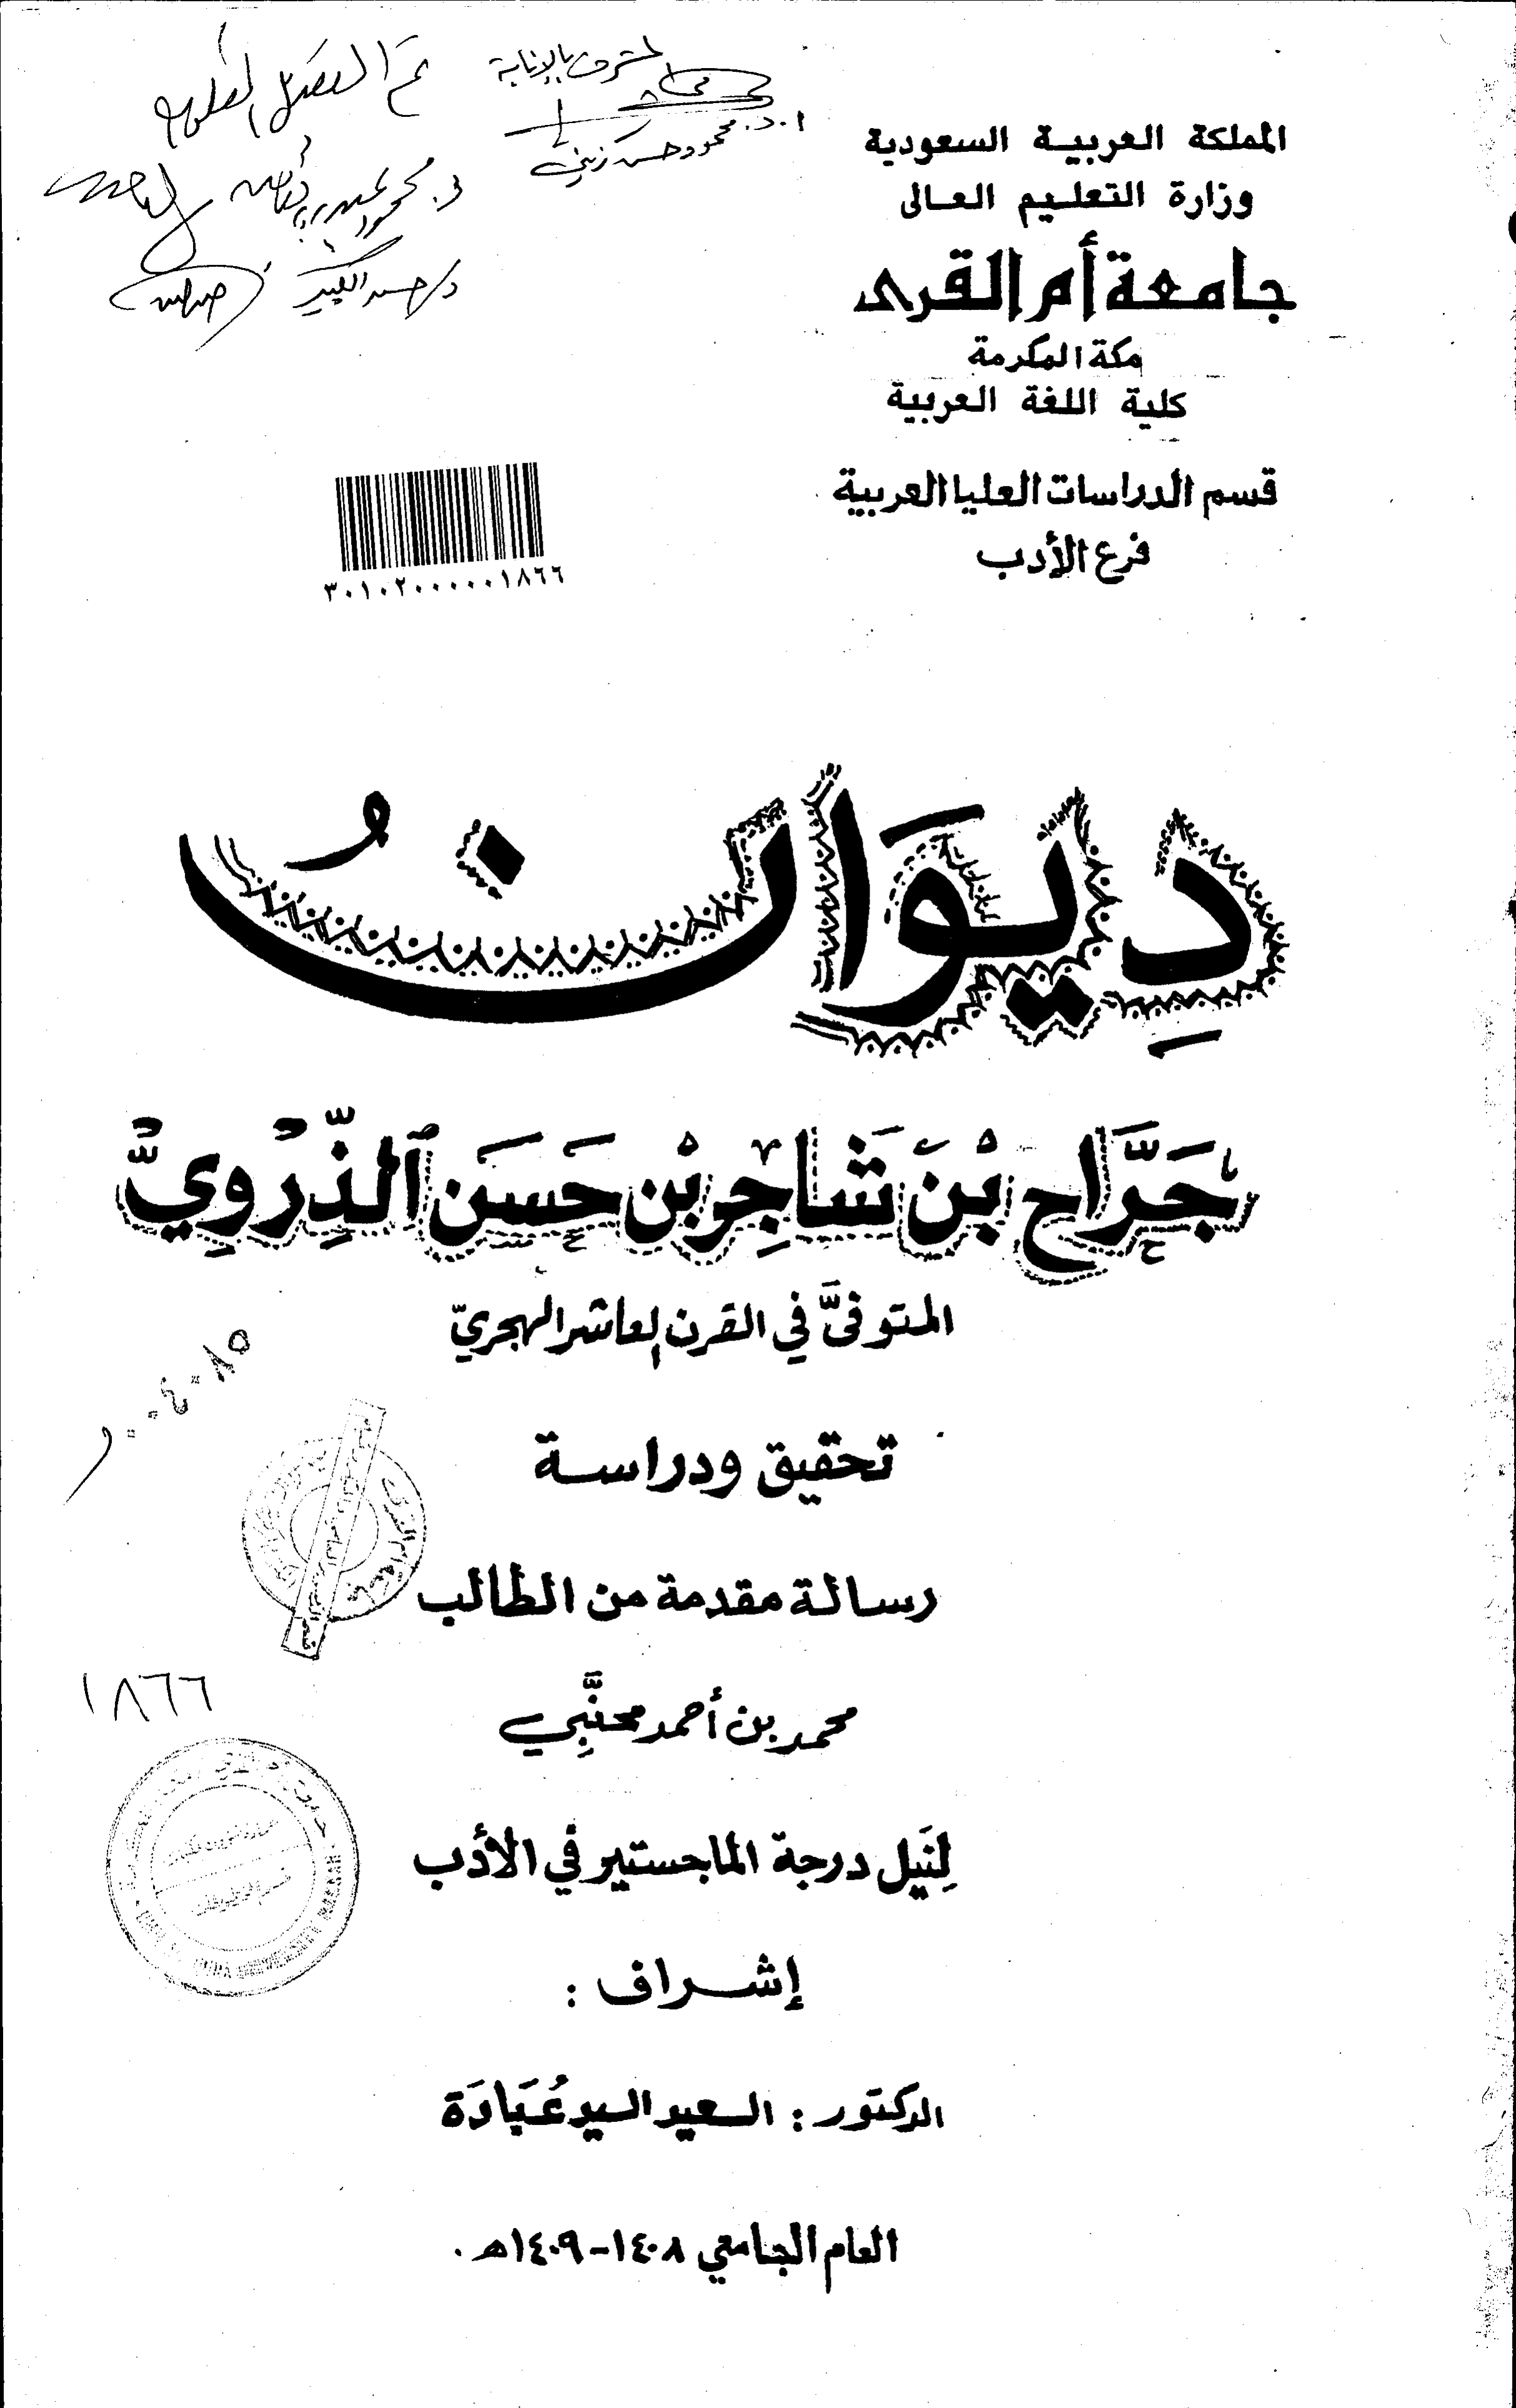 المملكة العربية السعودية
وزارة التعليم العالى
جامعة أم القرى
مكة المكرمة
كلية اللغة العربية
قسم الدراسات العليا العربية
فرع الأدب
المشرف بالإنابة
ا.د. محمود حسن زيني
٣٠١٠٢٠٠٠٠٠١٨٦٦
دِيوَانُ
جَرَّاحِ بْنِ شَاجِرِ بْنِ حَسَن الذِّرْوِيِّ
المتوفىَّ في القرن العاشر الهجريّ
تحقيق ودراسة
رسالة مقدمة من الطالب
محمد بن أحمد محنَّبِي
١٨٦٦
لِنَيل درجة الماجستير في الأدب
إشراف :
الدكتور : السعيد السيد عُبَادَة
العام الجامعي ١٤٠٨-١٤٠٩هـ .